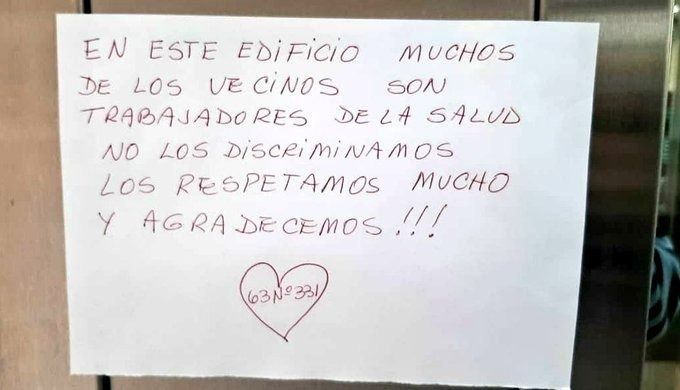 EN ESTE EDIFICIO MUCHOS
DE LOS VECINOS SON
TRABAJADORES DE LA SALUD
NO LOS DISCRIMINAMOS
LOS RESPETAMOS MUCHO
Y AGRADECEMOS!!!
63 Nº 331